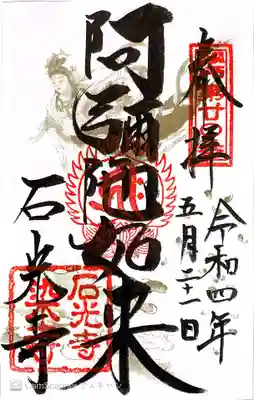 奉拝
令和四年
五月二十一日
阿彌陀如来
石光寺
石光寺
CamScanner でスキャン